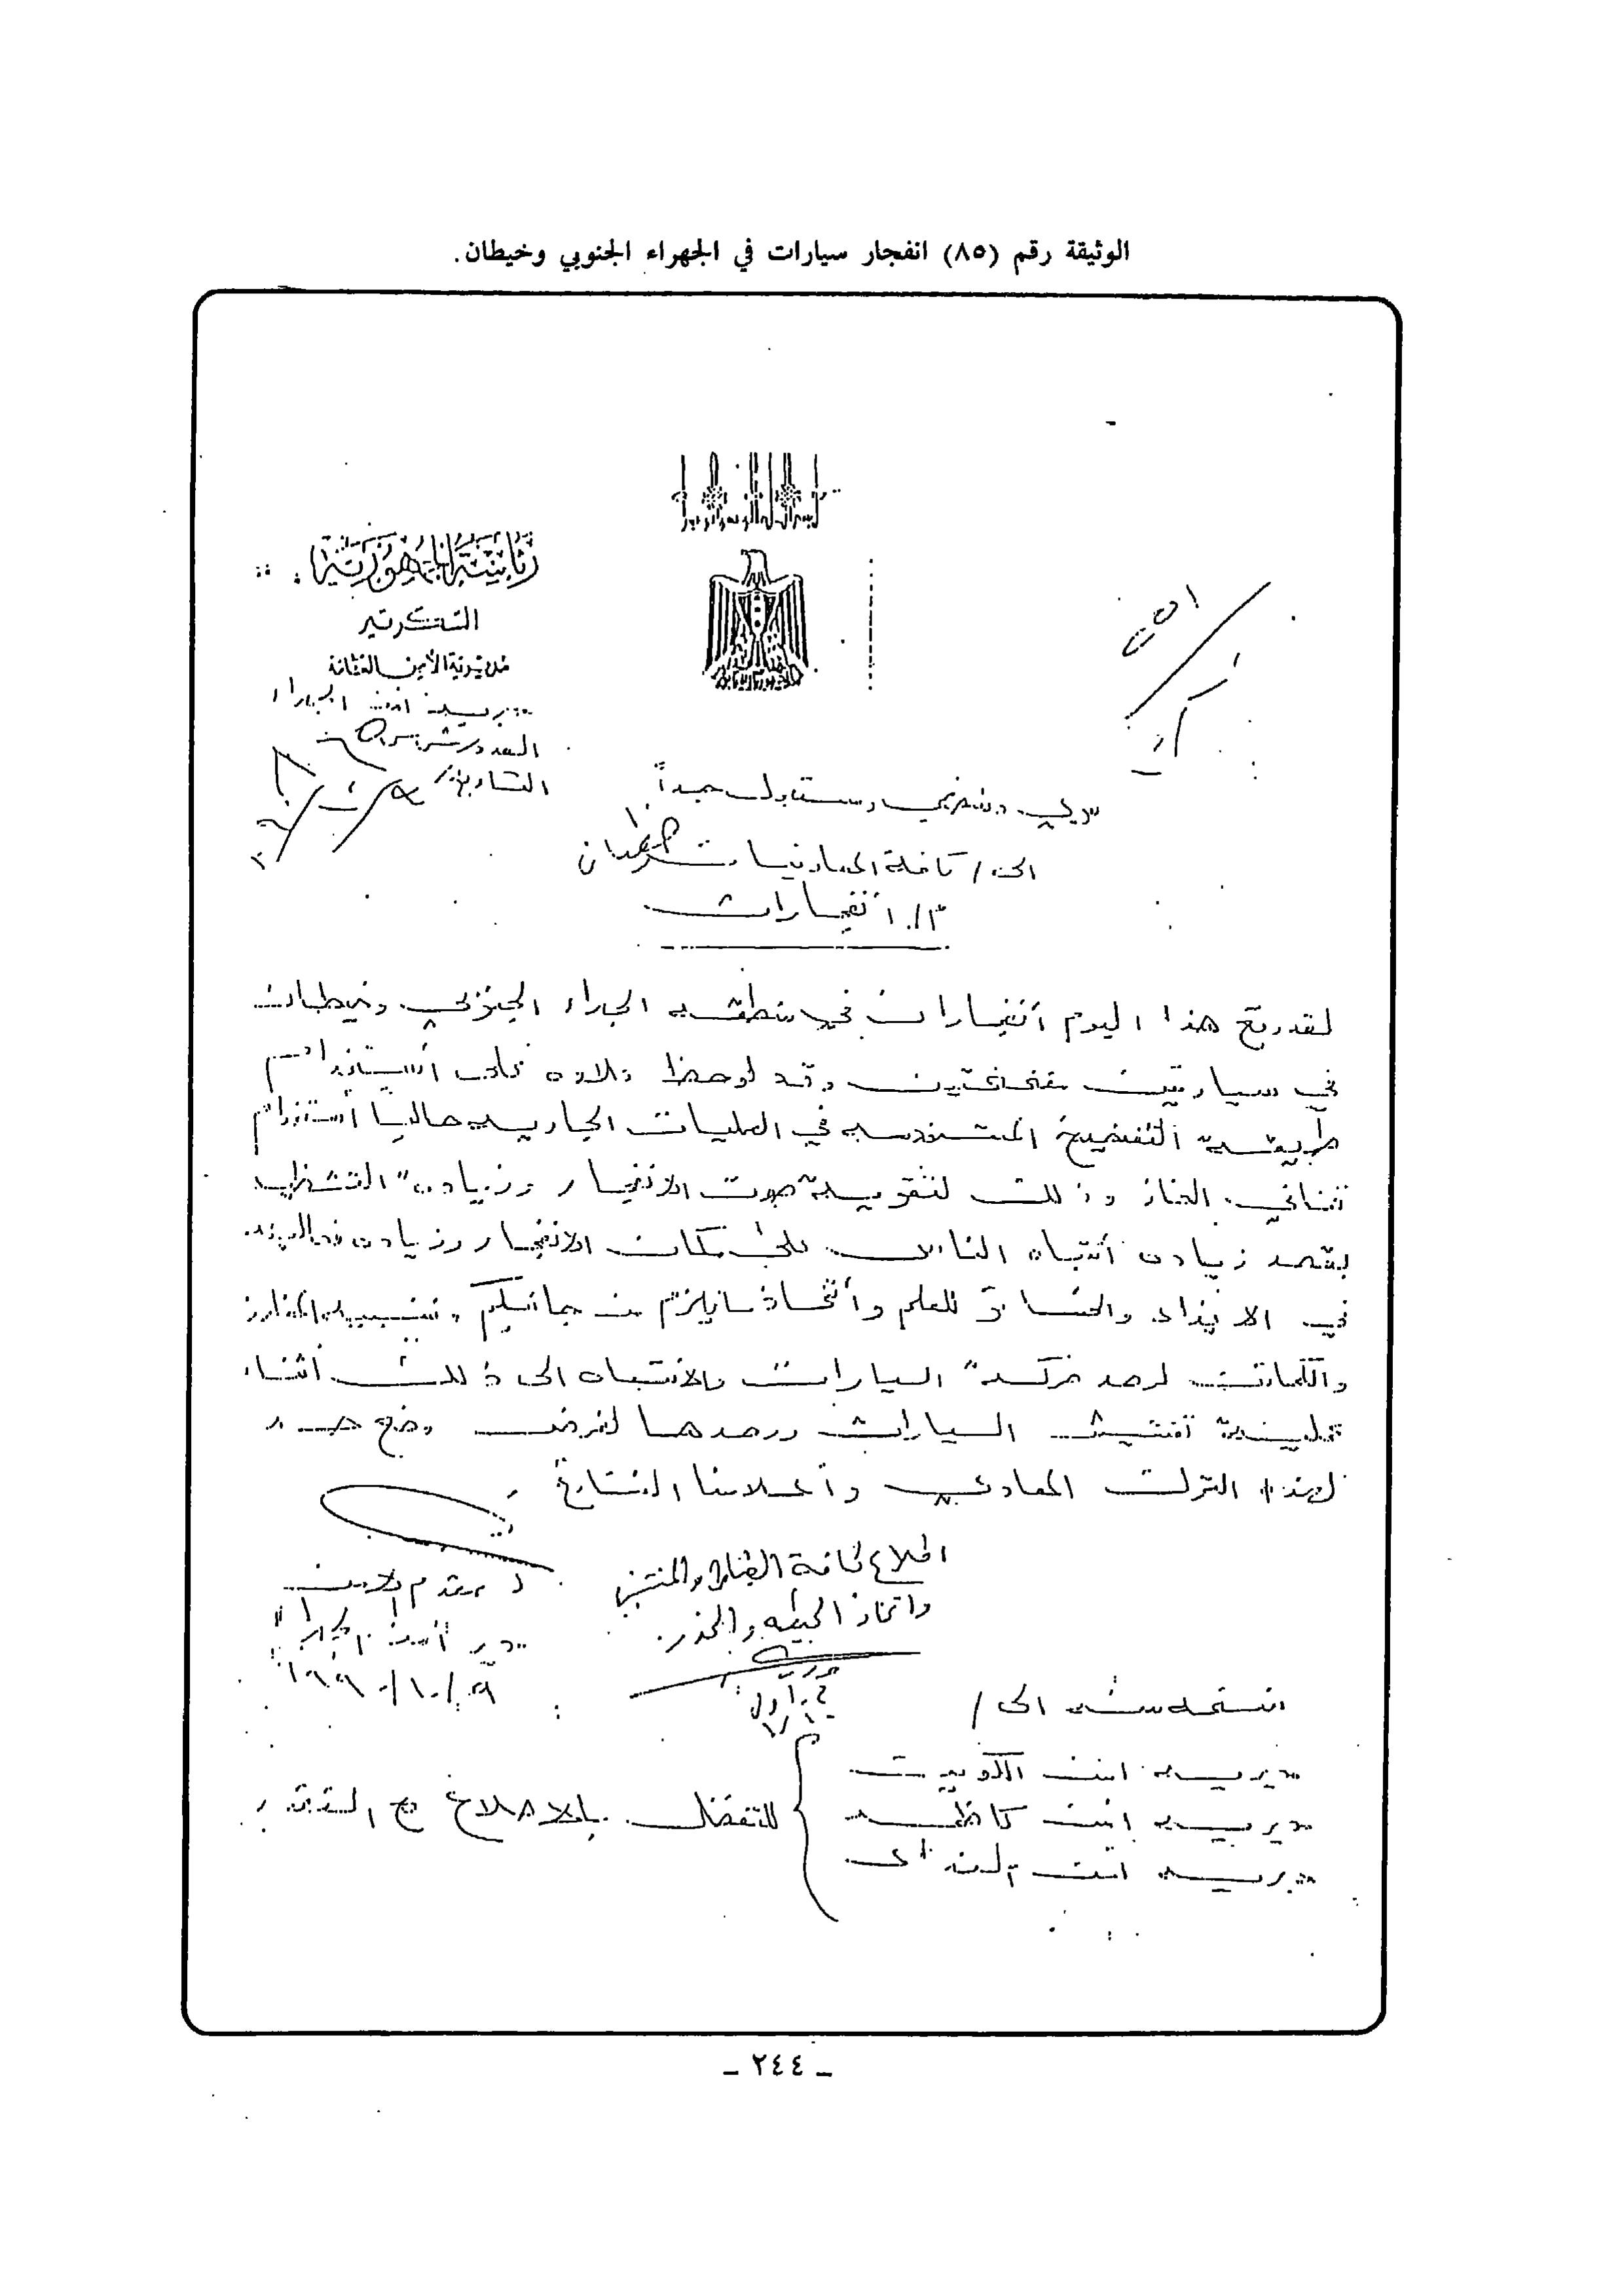 الوثيقة رقم (٨٥) انفجار سيارات في الجهراء الجنوبي وخيطان.
رئاسة الجمهورية
السكرتير
مديرية الأمن العامة
مديرية أمن الجهراء
العدد
التاريخ
سري وشخصي ومستعجل جداً
الى / كافة المعاونيات
م / انفجارات
لقد وقع هذا اليوم أنفجاران في منطقة الجهراء الجنوبي وخيطان
في سيارتين مفخختين وقد لوحظ علاوه على أستخدام
طريقة التفخيخ المستخدمه في العمليات الجاريه حاليا أستخدام
قناني الغاز وذلك لتقوية صوت الانفجار وزيادة التشظي
بقصد زيادة أنتباه الناس على مكان الانفجار وزيادة
في الايذاء والخسائر للعلم وأتخاذ مايلزم من جانبكم وتنسيب المفارز
والكمائن لرصد حركة السيارات والانتباه الى ذلك أثناء
عملية تفتيش السيارات ورصدها لغرض وضع حد
لهذا التحرك المعادي وأعلامنا النتائج
اطلاع كافة الضباط والمنتسبين
واتخاذ الحيطه والحذر
مقدم الامن
مدير أمن الجهراء
١٩٩٠/١٠/
نسخه منه الى /
مديريه امن الكويت
مديريه امن كاظمه
مديريه امن النداء
للتفضل بالاطلاع مع التقدير
ـ ٢٤٤ ـ